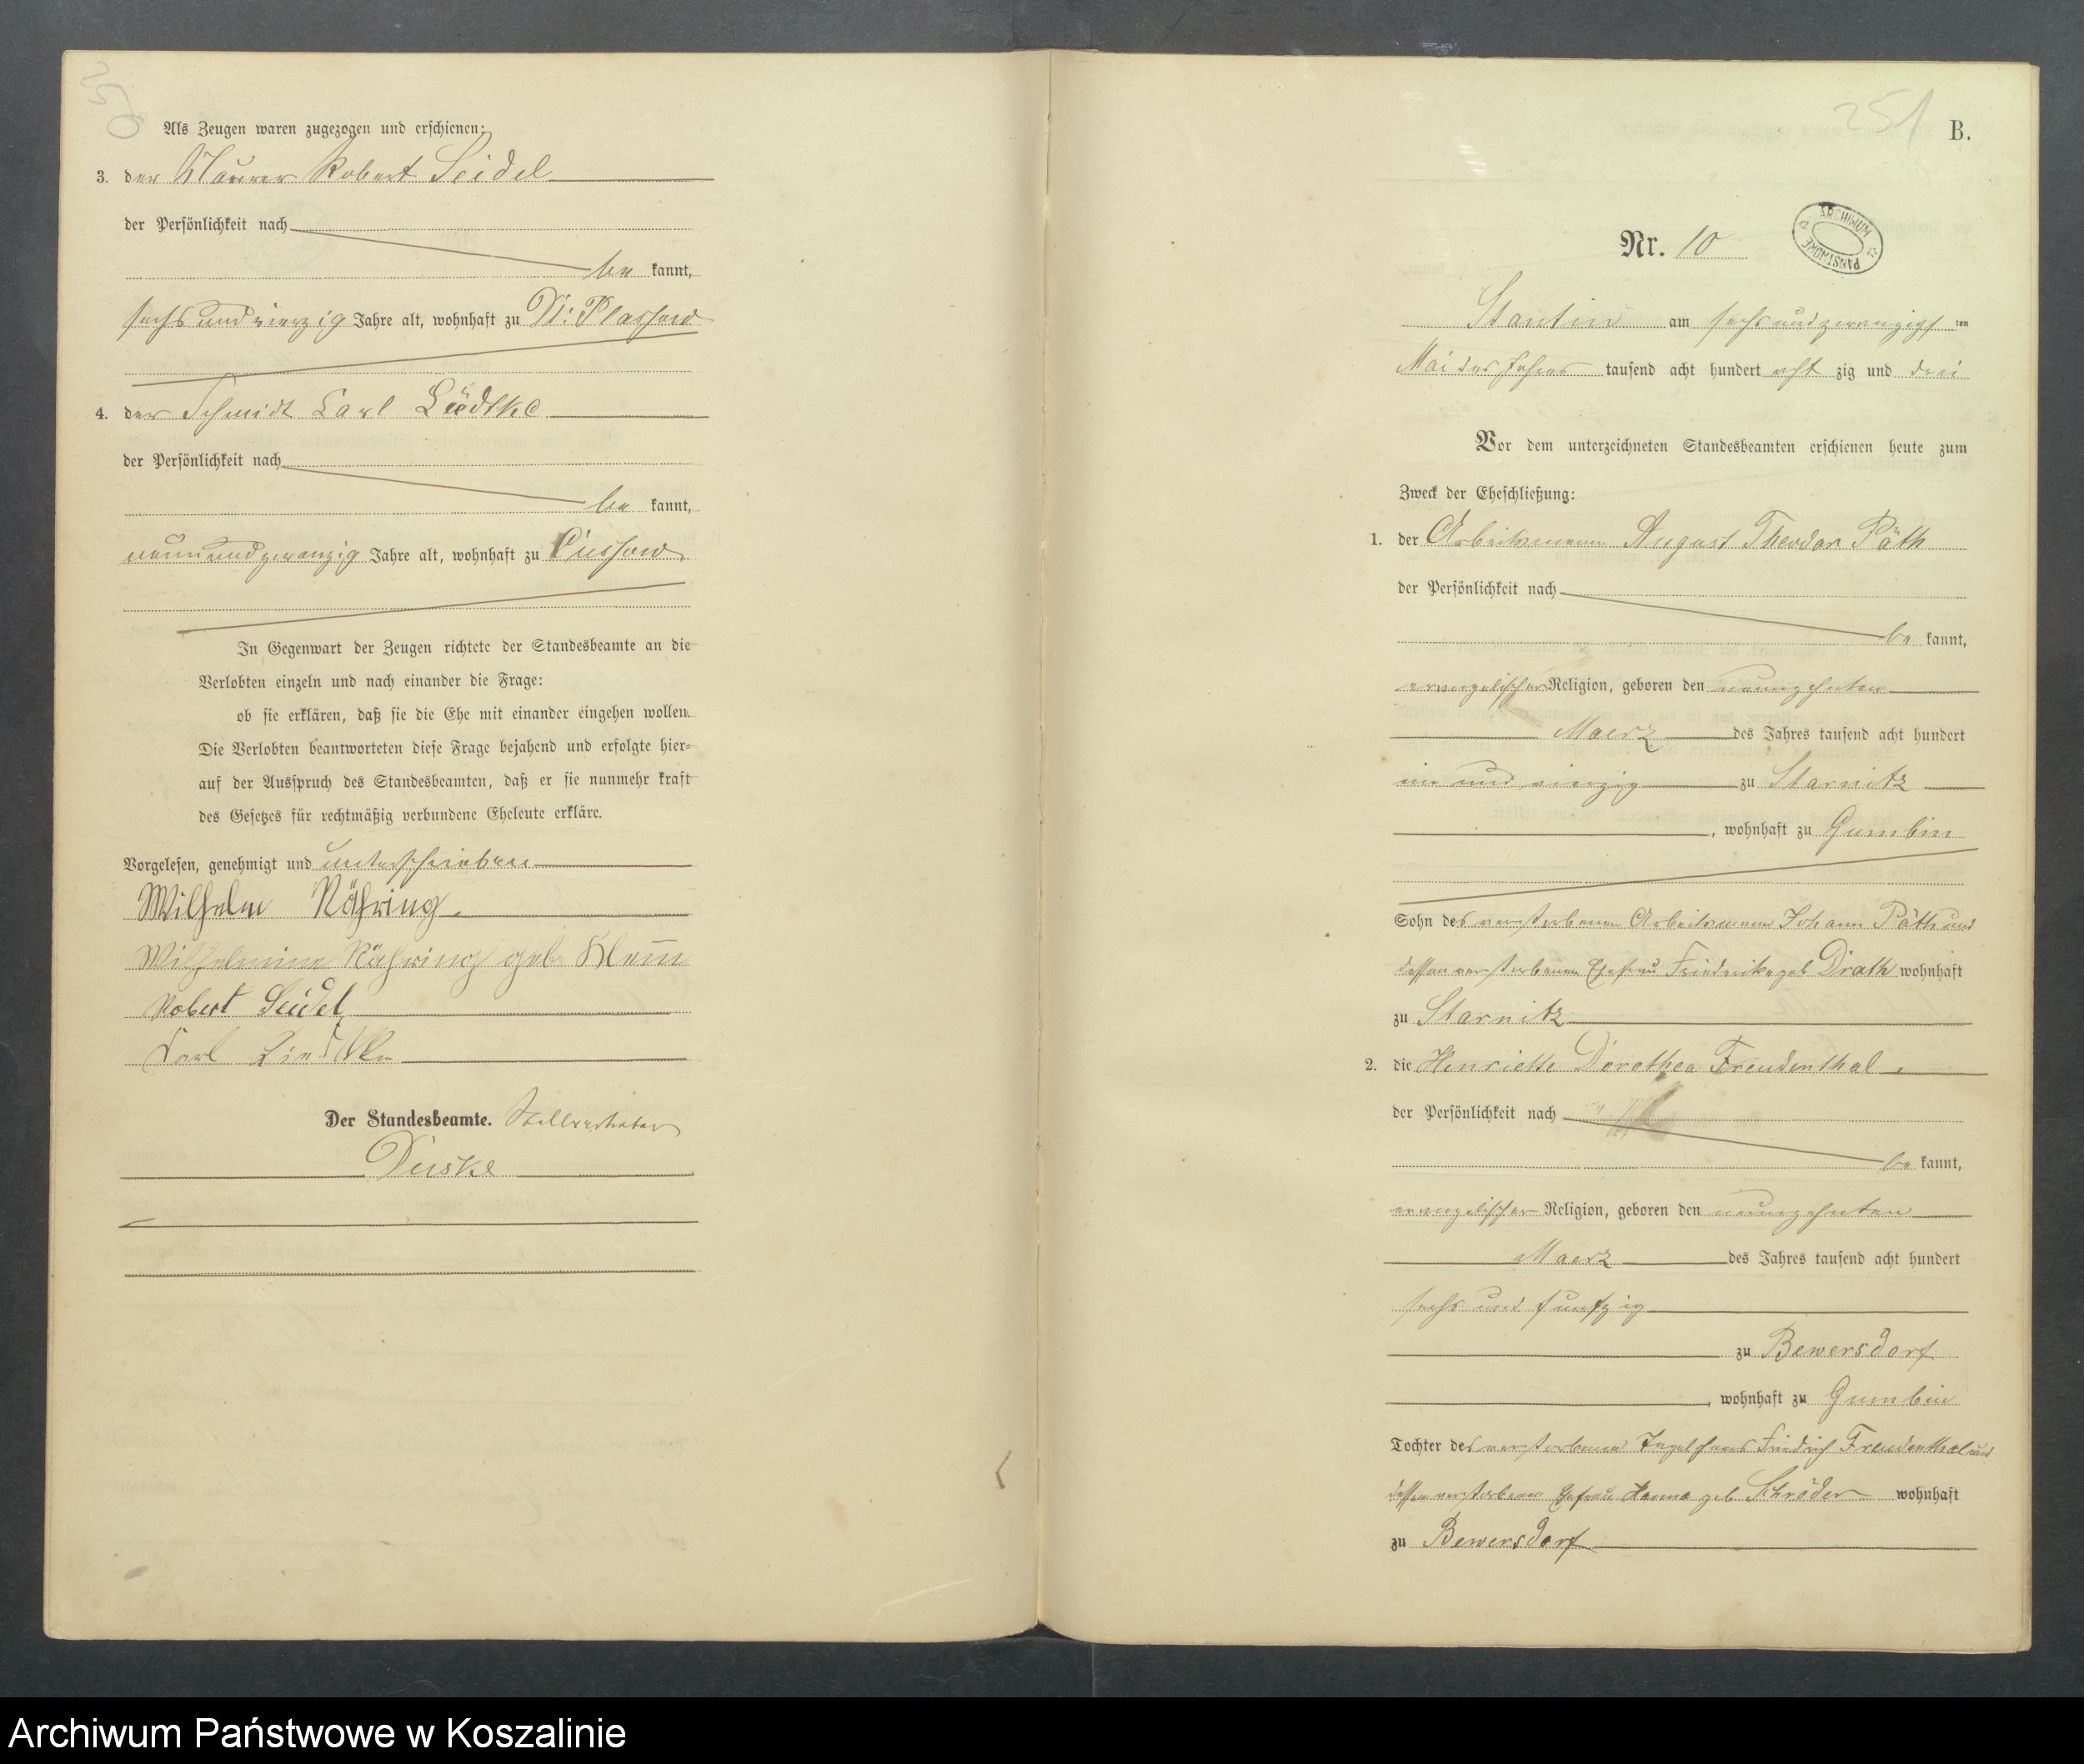 350
Als Zeugen waren zugezogen und erschienen:
3. der Maurer Robert Seidel
der Persönlichkeit nach
be kannt,
sechs und vierzig Jahre alt, wohnhaft zu Kl: Plassow
4. der Schmidt Carl Lüdtke
der Persönlichkeit nach
be kannt,
neun und zwanzig Jahre alt, wohnhaft zu Cussow
In Gegenwart der Zeugen richtete der Standesbeamte an die
Verlobten einzeln und nach einander die Frage:
ob sie erklären, daß sie die Ehe mit einander eingehen wollen.
Die Verlobten beantworteten diese Frage bejahend und erfolgte hier-
auf der Ausspruch des Standesbeamten, daß er sie nunmehr kraft
des Gesetzes für rechtmäßig verbundene Eheleute erkläre.
Vorgelesen, genehmigt und unterschrieben
Wilhelm Nähring.
Wilhelmine Nähring geb. Klem̄
Robert Seidel
Carl
Der Standesbeamte. Stellvertreter
251
B.
ARCHIWUM PAŃSTWOWE
Nr. 10
Stantin am sechs und zwanzigs ten
Mai des Jahres tausend acht hundert acht zig und drei
Vor dem unterzeichneten Standesbeamten erschienen heute zum
Zweck der Eheschließung:
1. der Arbeitsmann August Theodor Päth
der Persönlichkeit nach
be kannt,
evangelischer Religion, geboren den neunzehnten
Maerz des Jahres tausend acht hundert
ein und vierzig zu Starnitz
, wohnhaft zu Gumbin
Sohn des verstorbenen Arbeitsmann Johann Päth und
dessen verstorbenen Ehefrau Friederike geb Drath wohnhaft
zu Starnitz
2. die Henriette Dorothea Freudenthal,
der Persönlichkeit nach
be kannt,
evangelischer Religion, geboren den neunzehnten
Maerz des Jahres tausend acht hundert
sechs und funfzig
zu Bewersdorf
, wohnhaft zu Gumbin
Tochter des verstorbenen Friedrich Freudenthal und
dessen verstorbenen Ehefrau Hanna geb Schröder wohnhaft
zu Bewersdorf
Archiwum Państwowe w Koszalinie